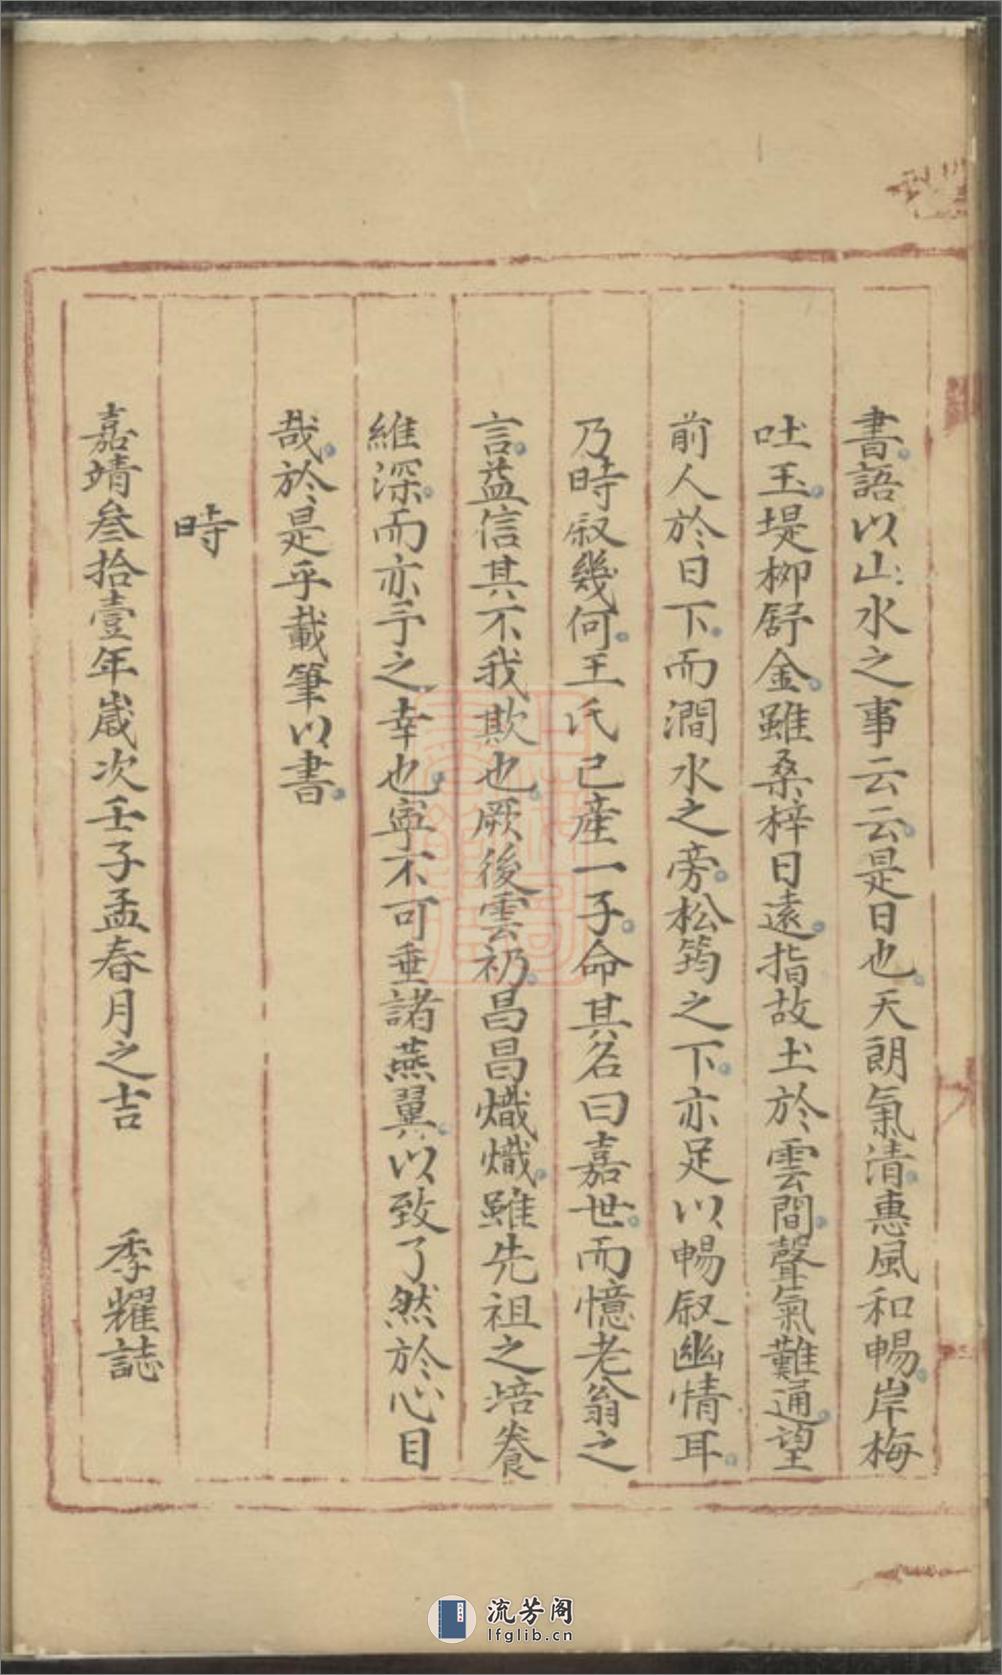 書語以山水之事云云是日也天朗氣清惠風和暢岸梅
吐玉堤柳舒金雖桑梓日遠指故土於雲間聲氣難通望
前人於日下而澗水之旁松筠之下亦足以暢叙幽情耳
乃時叙幾何王氏已產一子命其名曰嘉世而憶老翁之
言益信其不我欺也厥後雲礽昌昌熾熾雖先祖之培養
維深而亦予之幸也寕不可垂諸燕翼以致了然於心目
哉於是乎載筆以書
時
嘉靖叁拾壹年歲次壬子孟春月之吉 季耀誌
流芳阁
lfglib.cn